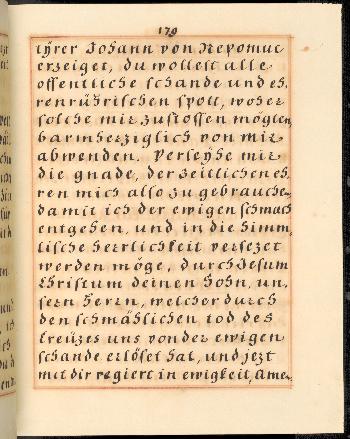 179
tÿrer Johann von Nepomuc
erzeiget, du wollest alle
offentliche schande und eh,
renrührischen spott, woher
solche mir zustossen mögten,
barmherziglich von mir
abwenden. Verleÿhe mir
die gnade, der zeitlichen eh,
ren mich also zu gebrauchen,
damit ich der ewigen schmach
entgehen, und in die himm,
lische herrlichkeit versezet
werden möge, durch Jesum
Christum deinen Sohn, un,
sern Herrn, welcher durch
den schmählichen tod des
Creüzes uns von der ewigen
schande erlöset hat, und jezt
mit dir regiert in ewigkeit, Amen.